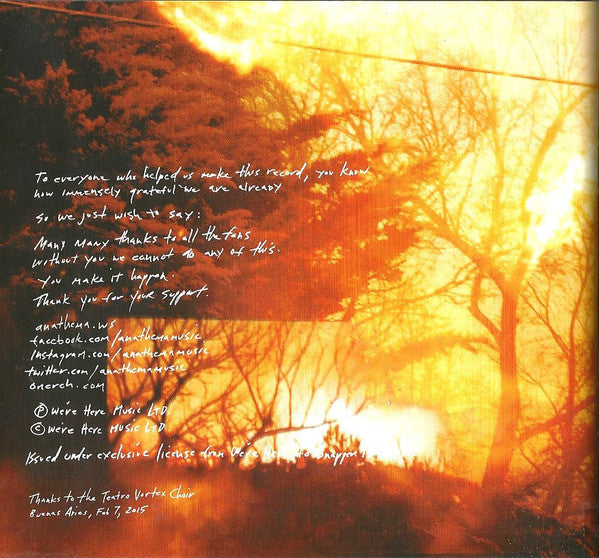 To everyone who helped us make this record, you know
how immensely grateful we are already
So we just wish to say:
Many Many thanks to all the fans
without you we cannot do any of this.
You make it happen.
Thank you for your support.
anathema.ws
facebook.com/anathemamusic
Instagram.com/anathemamusic
twitter.com/anathemamusic
onerch.com
Ⓟ We're Here Music LTD.
© We're Here Music LTD.
Issued under exclusive license from We're Here to Snapper
Thanks to the Teatro Vortex Choir
Buenos Aries, Feb 7, 2015